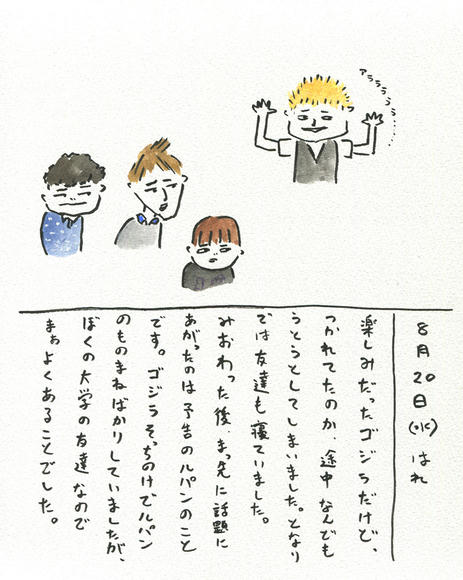 アラララララ……
8月20日(水)はれ
楽しみだったゴジラだけど、
つかれてたのか、途中なんども
うとうとしてしまいました。となり
では友達も寝ていました。
みおわった後、まっ先に話題に
あがったのは予告のルパンのこと
です。ゴジラそっちのけでルパン
のものまねばかりしていましたが、
ぼくの大学の友達なので
まぁよくあることでした。